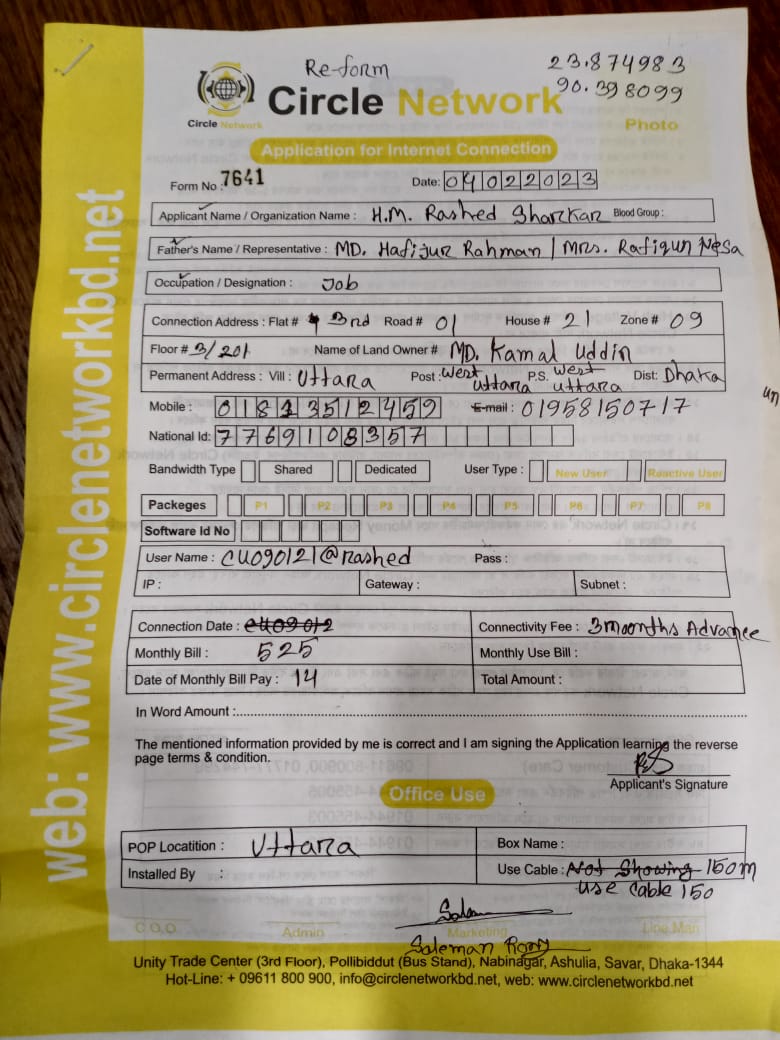 Re-form
23.874983
90.398099
Circle Network
Circle Network
Photo
Application for Internet Connection
Form No : 7641
Date: 04022023
Applicant Name / Organization Name : H.M. Rashed Sharkar Blood Group :
Father's Name / Representative : MD. Hafijur Rahman / Mrs. Rafiqun Nesa
Occupation / Designation : Job
Connection Address : Flat # 3rd Road # 01 House # 21 Zone # 09
Floor # 3/201 Name of Land Owner # MD. Kamal Uddin
Permanent Address : Vill : Uttara Post : West Uttara P.S. West Uttara Dist: Dhaka
Mobile : E-mail : 01958150717
National Id: 7769108357
Bandwidth Type Shared Dedicated User Type : New User Reactive User
Packeges P1 P2 P3 P4 P5 P6 P7 P8
Software Id No
User Name : CU090121@rashed Pass :
IP : Gateway : Subnet :
Connection Date : Connectivity Fee : 3 moonths Advance
Monthly Bill : 525 Monthly Use Bill :
Date of Monthly Bill Pay : 14 Total Amount :
In Word Amount :
The mentioned information provided by me is correct and I am signing the Application learning the reverse
page terms & condition.
Applicant's Signature
Office Use
POP Locatition : Uttara Box Name :
Installed By : Use Cable : Not Showing 150m
use cable 150
C O O Admin Marketing Line Man
Saleman Rony
Unity Trade Center (3rd Floor), Pollibiddut (Bus Stand), Nabinagar, Ashulia, Savar, Dhaka-1344
Hot-Line: + 09611 800 900, info@circlenetworkbd.net, web: www.circlenetworkbd.net
web: www.circlenetworkbd.net